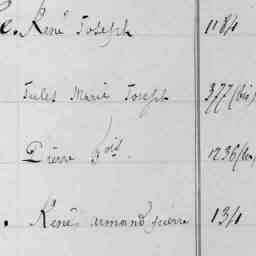 e. René Joseph 1184
Jules Marie Joseph 377 (bis)
Pierre fois 1236 (bis)
René armand pierre 134